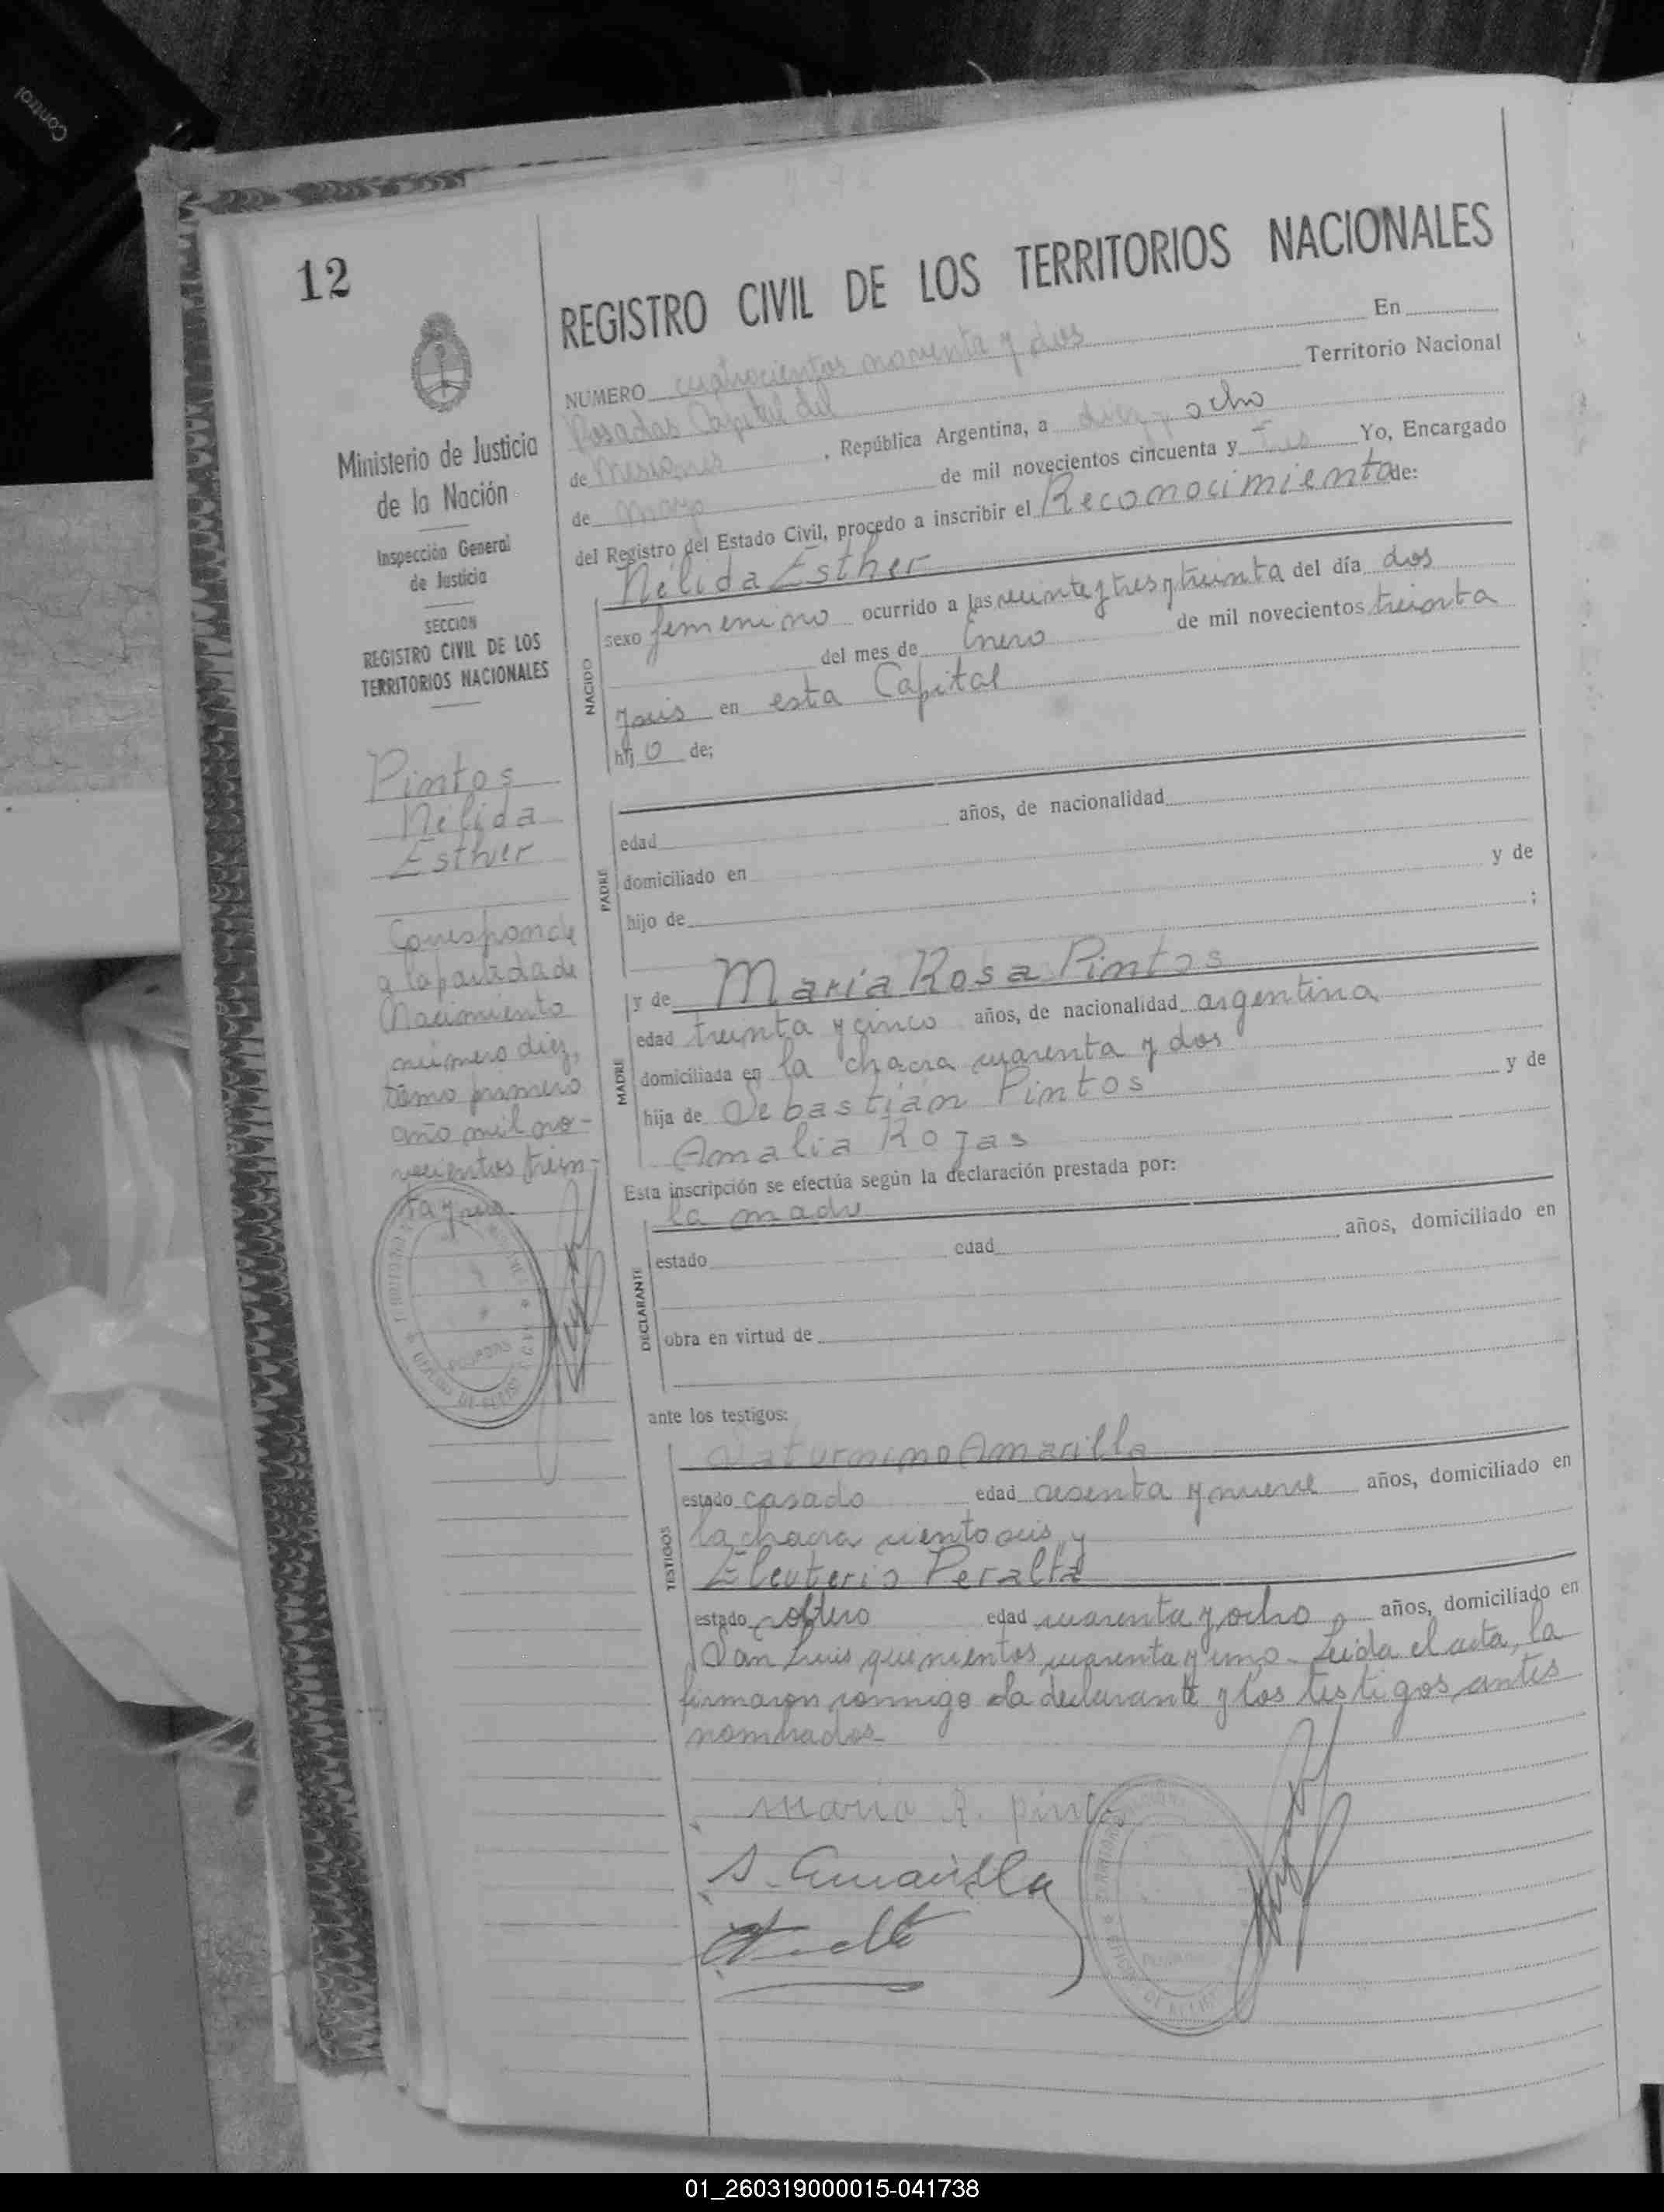 Control
12
Ministerio de Justicia
de la Nación
Inspección General
de Justicia
SECCION
REGISTRO CIVIL DE LOS
TERRITORIOS NACIONALES
Pintos
Nélida
Esther
Corresponde
a la partida de
Nacimiento
número diez,
tomo primero
año mil no-
vecientos trein-
ta y seis.
REGISTRO CIVIL DE LOS TERRITORIOS NACIONALES
NUMERO cuatrocientos noventa y dos En
Posadas Capital del Territorio Nacional
de Misiones, República Argentina, a diez y ocho
de mayo de mil novecientos cincuenta y tres Yo, Encargado
del Registro del Estado Civil, procedo a inscribir el Reconocimiento de:
NACIDO
Nélida Esther
sexo femenino ocurrido a las veinte y tres y treinta del día dos
del mes de Enero de mil novecientos treinta
y seis en esta Capital
hij o de;
PADRE
edad años, de nacionalidad
domiciliado en
hijo de y de
;
MADRE
y de María Rosa Pintos
edad treinta y cinco años, de nacionalidad argentina
domiciliada en la chacra cuarenta y dos
hija de Sebastián Pintos y de
Amalia Rojas
Esta inscripción se efectúa según la declaración prestada por:
DECLARANTE
la madre
estado edad años, domiciliado en
obra en virtud de
ante los testigos:
TESTIGOS
Saturnino Amarilla
estado casado edad sesenta y nueve años, domiciliado en
la chacra ciento seis y
Eleuterio Peralta
estado soltero edad cuarenta y ocho años, domiciliado en
San Luis quinientos cuarenta y uno. Leida el acta, la
firmaron conmigo la declarante y los testigos antes
nombrados.
Maria R. Pintos
S. Amarilla
POSADAS
01_260319000015-041738